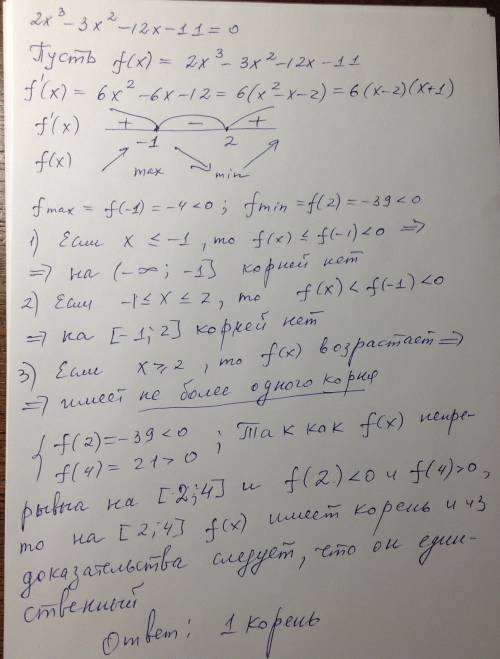 2x³-3x²-12x-11=0
Пусть f(x) = 2x³-3x²-12x-11
f'(x) = 6x²-6x-12 = 6(x²-x-2) = 6(x-2)(x+1)
f'(x) + - +
-1 2
f(x) max min
fmax = f(-1) = -4<0 ; fmin = f(2) = -39<0
1) Если x ≤ -1, то f(x) ≤ f(-1) <0 ⇒
⇒ на (-∞; -1] корней нет
2) Если -1 ≤ x ≤ 2, то f(x) < f(-1) <0
⇒ на [-1; 2] корней нет
3) Если x ≥ 2, то f(x) возрастает ⇒
⇒ имеет не более одного корня
{ f(2) = -39 <0
f(4) = 21 > 0 ; Так как f(x) непре-
рывна на [2;4] и f(2)<0 и f(4)>0,
то на [2;4] f(x) имеет корень и из
доказательства следует, что он един-
ственный
Ответ: 1 корень